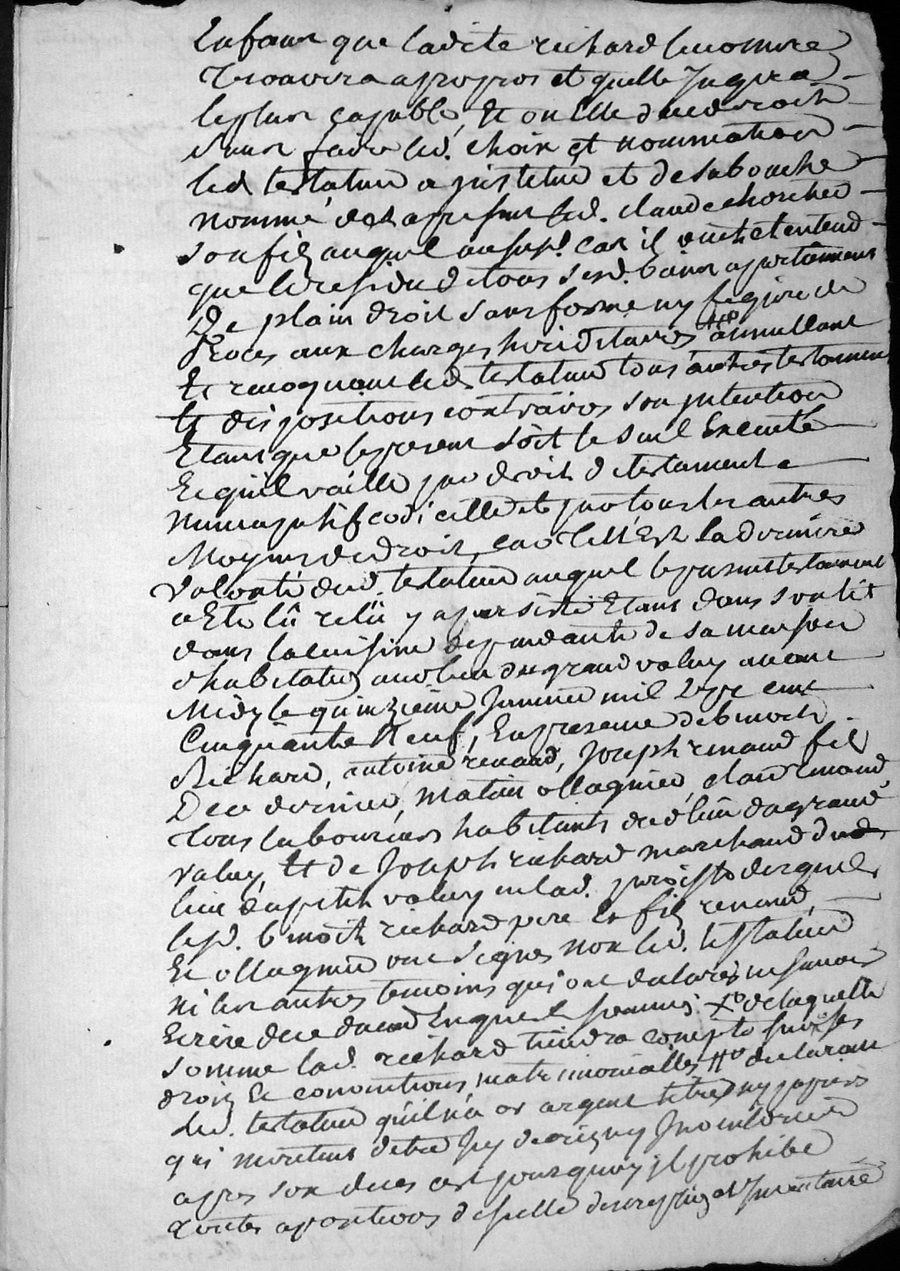 Enfans que ladite richard sa commere
trouvera a propos et quelle Jugera
le plus capable, Et ou elle decederoit
sans faire led. choix et nomination
led. testateur a institué et de sa bouche
nommé des a present led. claude
son fils auquel aud. cas il veut et entend
que le residu de tous sesd. biens apartiennent
De plain droit sans forme ny figure de
proces aux charges hereditaires annullant
Et revoquant led. testateur tous autres testaments
Et dispositions contraires son intention
Etant que le present soit le seul Executé
Et quil vaille par droit de testament
nuncupatif codicille et par tous les autres
Moyens de droit, car telle Est la derniere
volonté dud. testateur auquel le present testament
a Eté lû relû y a persisté Etant dans son lit
dans la cuisine dependante de sa maison
d'habitation au lieu du grand valuy avant
Midy le quinzieme Janvier mil sept cent
Cinquante Neuf, En presence de benoit
Richard, antoine renaud, Joseph renaud fils
De ce dernier, matieu ollagnier, claude renaud,
tous laboureurs habitants dud. lieu du grand
valuy Et de Joseph richard marchand dud.
lieu du petit valuy en lad. paroisse desquels
lesd. benoit richard pere et fils renaud,
Et ollagnier ont signés non led. testateur
ni les autres temoins qui ont declarés ne savoir
Ecrire de ce Enquis et sommés; de laquelle
somme lad. richard tiendra compte sur ses
droits Et conventions matrimonialles declarant
led. testateur quil n'a or argent titres ny papiers
qui meritent d'etre Inventoriés
apres son deces c'est pourquoy il prohibe
toutes apositions de scellé description et Inventaire